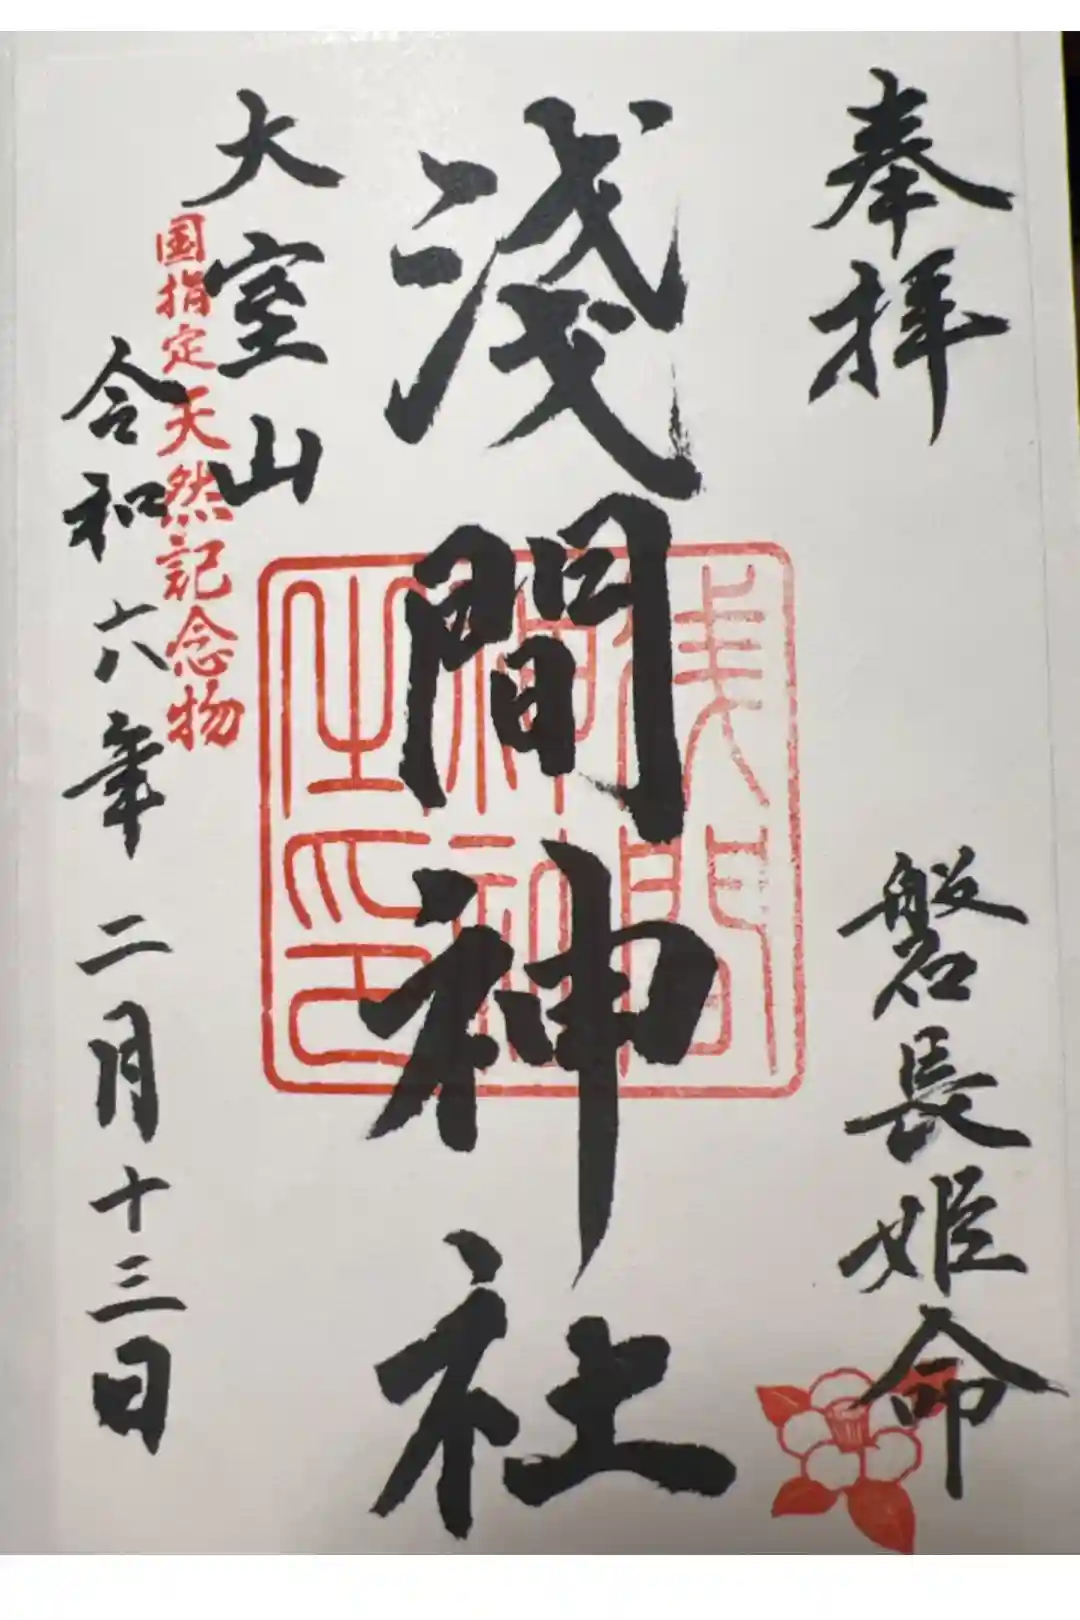 奉拝
磐長姫命
淺間神社
浅間
神社
之印
大室山
国指定天然記念物
令和六年二月十三日